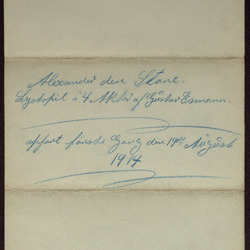 Alexander den Store.
Lystspil i 4 Akter af Gustav Esmann.
opført første Gang den 14de August
1914